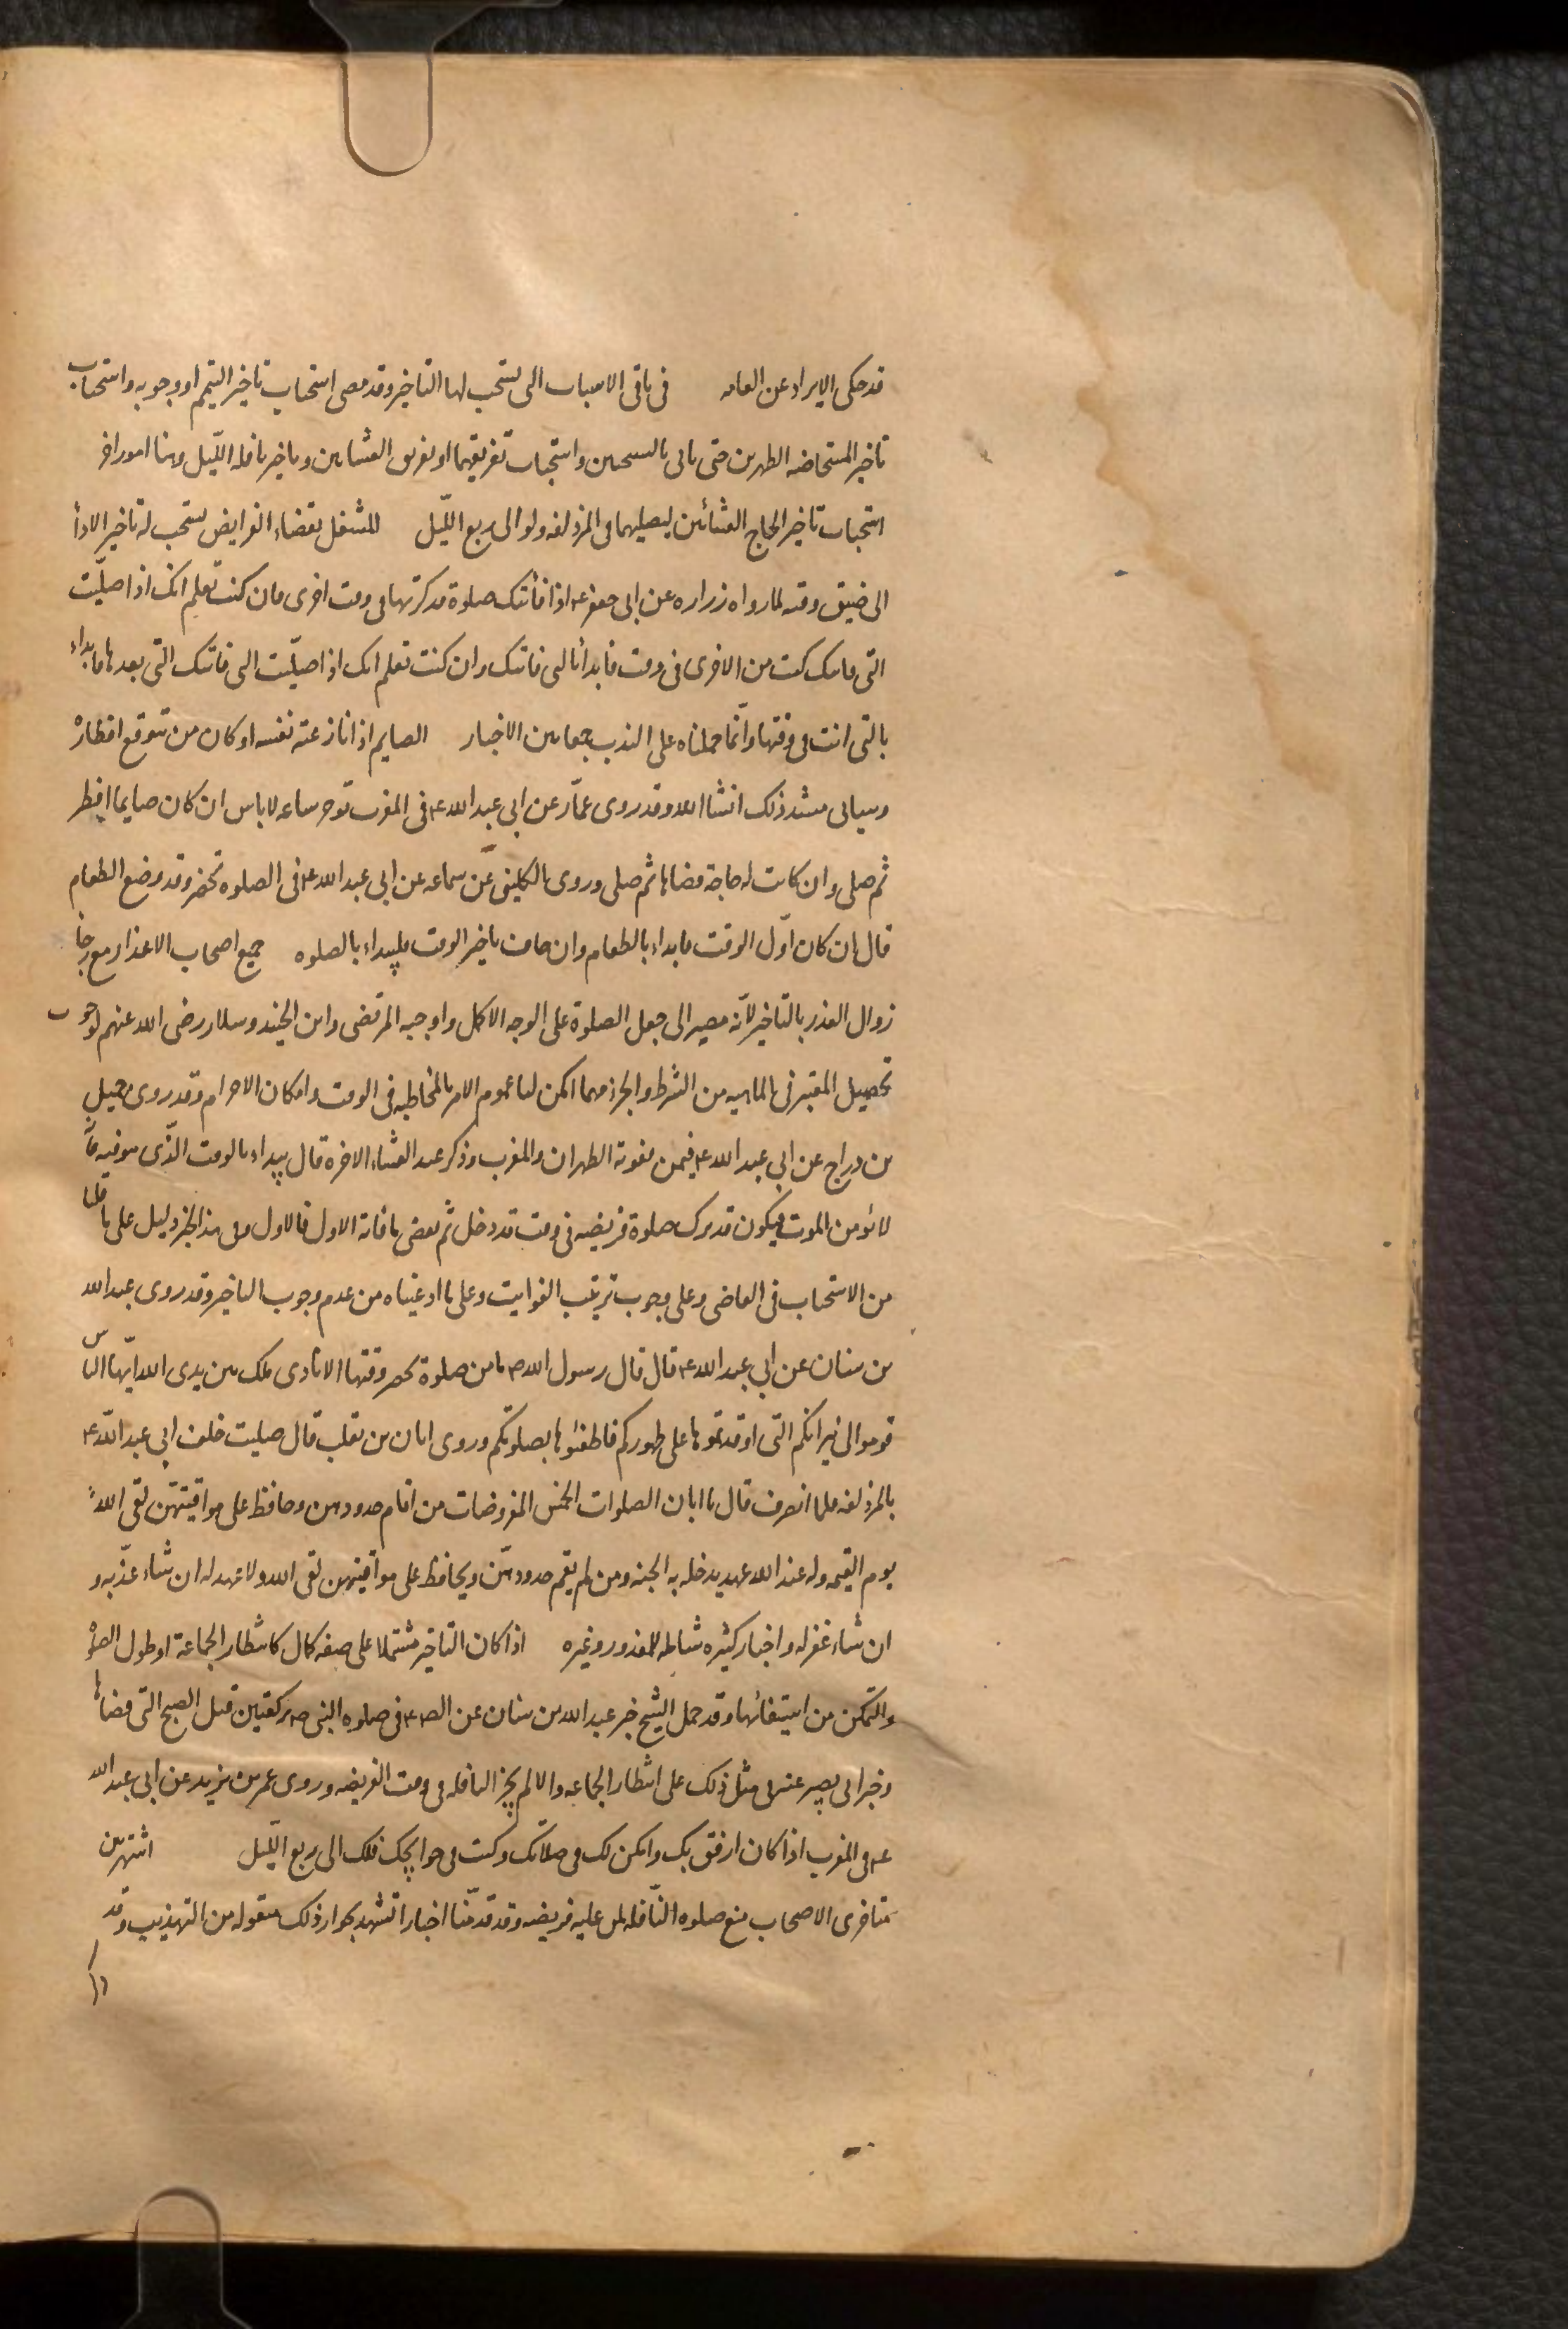 قد حكى الايراد عن العامه في باقى الاسباب التى يستحب لها التاخير وقد مضى استحباب تاخير التيمم او وجوبه واستحباب
تاخير المستحاضه الظهرين حتى ياتى بالغسلين واستحباب تفريقهما او تفريق العشاءين وتاخير نافله الليل وهنا امور اخر
استحباب تاخير الحاج العشائين ليصليهما فى المزدلفه ولو الى ربع الليل للمشغل بقضاء الفرايض يستحب له تاخير الاداء
الى ضيق وقته لما رواه زراره عن ابى جعفر ع اذا فاتتك صلوة فذكرتها فى وقت اخرى فان كنت تعلم انك اذا صليت
التى فاتتك كنت من الاخرى فى وقت فابدا بالتى فاتتك وان كنت تعلم انك اذا صليت التى فاتتك التى بعدها فابداء
بالتى انت فى وقتها وانما حملناه على الندب جمعا بين الاخبار الصايم اذا نازعته نفسه او كان من يتوقع افطاره
وسياتى مسند ذلك انشا الله وقد روى عمار عن ابى عبد الله ع فى المغرب تؤخر ساعه لا باس ان كان صايما افطر
ثم صلى وان كانت له حاجة قضاها ثم صلى وروى الكلينى عن سماعه عن ابى عبد الله ع فى الصلوه تحضر وقد وضع الطعام
قال ان كان اول الوقت فابداء بالطعام وان خاف تاخير الوقت فليبداء بالصلوه جميع اصحاب الاعذار مع رجا
زوال العذر بالتاخير لانه مصير الى جعل الصلوة على الوجه الاكمل واوجبه المرتضى وابن الجنيد وسلار رضى الله عنهم لوجوب
تحصيل المعتبر فى الماهيه من الشرط والجزء مهما امكن لنا عموم الامر بالمخاطبه فى الوقت وامكان الاخرام وقد روى جميل
بن دراج عن ابى عبد الله ع فيمن تفوته الظهران والمغرب وذكر عند العشاء الاخره قال يبداء بالوقت الذى هو فيه فانه
لا يؤمن الموت فيكون قد ترك صلوة فريضه فى وقت قد دخل ثم يقضى ما فاته الاول فالاول وفى هذا الخبر دليل على ما قلنا
من الاستحباب فى القاضى وعلى وجوب ترتيب الفوايت وعلى ما ادعيناه من عدم وجوب التاخير وقد روى عبد الله
بن سنان عن ابى عبد الله ع قال قال رسول الله ص ما من صلوة يحضر وقتها الا نادى ملك بين يدى الله ايها الناس
قوموا الى نيرانكم التى اوقدتموها على ظهوركم فاطفئوها بصلوتكم وروى ابان بن تغلب قال صليت خلف ابى عبد الله ع
بالمزدلفه فلما انصرف قال يا ابان الصلوات الخمس المفروضات من اقام حدودهن وحافظ على مواقيتهن لقى الله
يوم القيمه وله عند الله عهد يدخله به الجنه ومن لم يقم حدودهن ويحافظ على مواقيتهن لقى الله ولا عهد له ان شاء عذبه و
ان شاء غفر له واخبار كثيره شامله للمعذور وغيره اذا كان التاخير مشتملا على صفه كمال كانتظار الجماعة او طول الصلوة
والتمكن من استيفائها وقد حمل الشيخ خبر عبد الله بن سنان عن الصه ع فى صلوه النبى ص ركعتين قبل الصبح التى قضاها
وخبر ابى بصير عنه فى مثل ذلك على انتظار الجماعه والا لم يجز النافله فى وقت الفريضه وروى عمر بن يزيد عن ابى عبد الله
ع فى المغرب اذا كان ارفق بك وامكن لك فى صلاتك وكنت فى حوايجك فلك الى ربع الليل اشتهر بين
متاخرى الاصحاب منع صلوه النافله لمن عليه فريضه وقد قدمنا اخبارا تشهد بجواز ذلك منقوله من التهذيب وقد